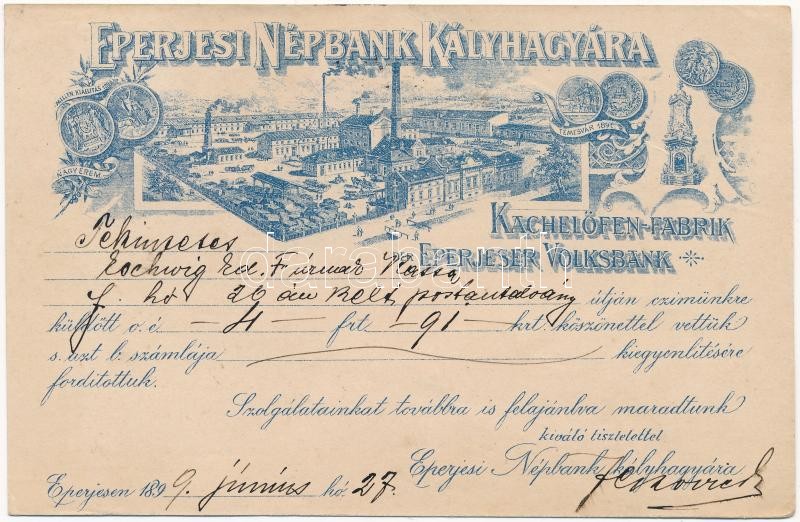 EPERJESI NÉPBANK KÁLYHAGYÁRA
MILLEN. KIÁLLITÁS
NAGY ÉREM
TEMESVÁR 189
KACHELÖFEN-FABRIK
DER EPERJESER VOLKSBANK
Tekintetes
Ed. Firmák Kassa
f. hó 26 án kelt postautalvány útján czimünkre
küldött o. é. -4- frt. -91- krt. köszönettel vettük
s azt b. számlája kiegyenlitésére
forditottuk.
Szolgálatainkat továbbra is felajánlva maradtunk
kiváló tisztelettel
Eperjesi Népbank kályhagyára
Eperjesen 1899. június hó 27.
darabanth